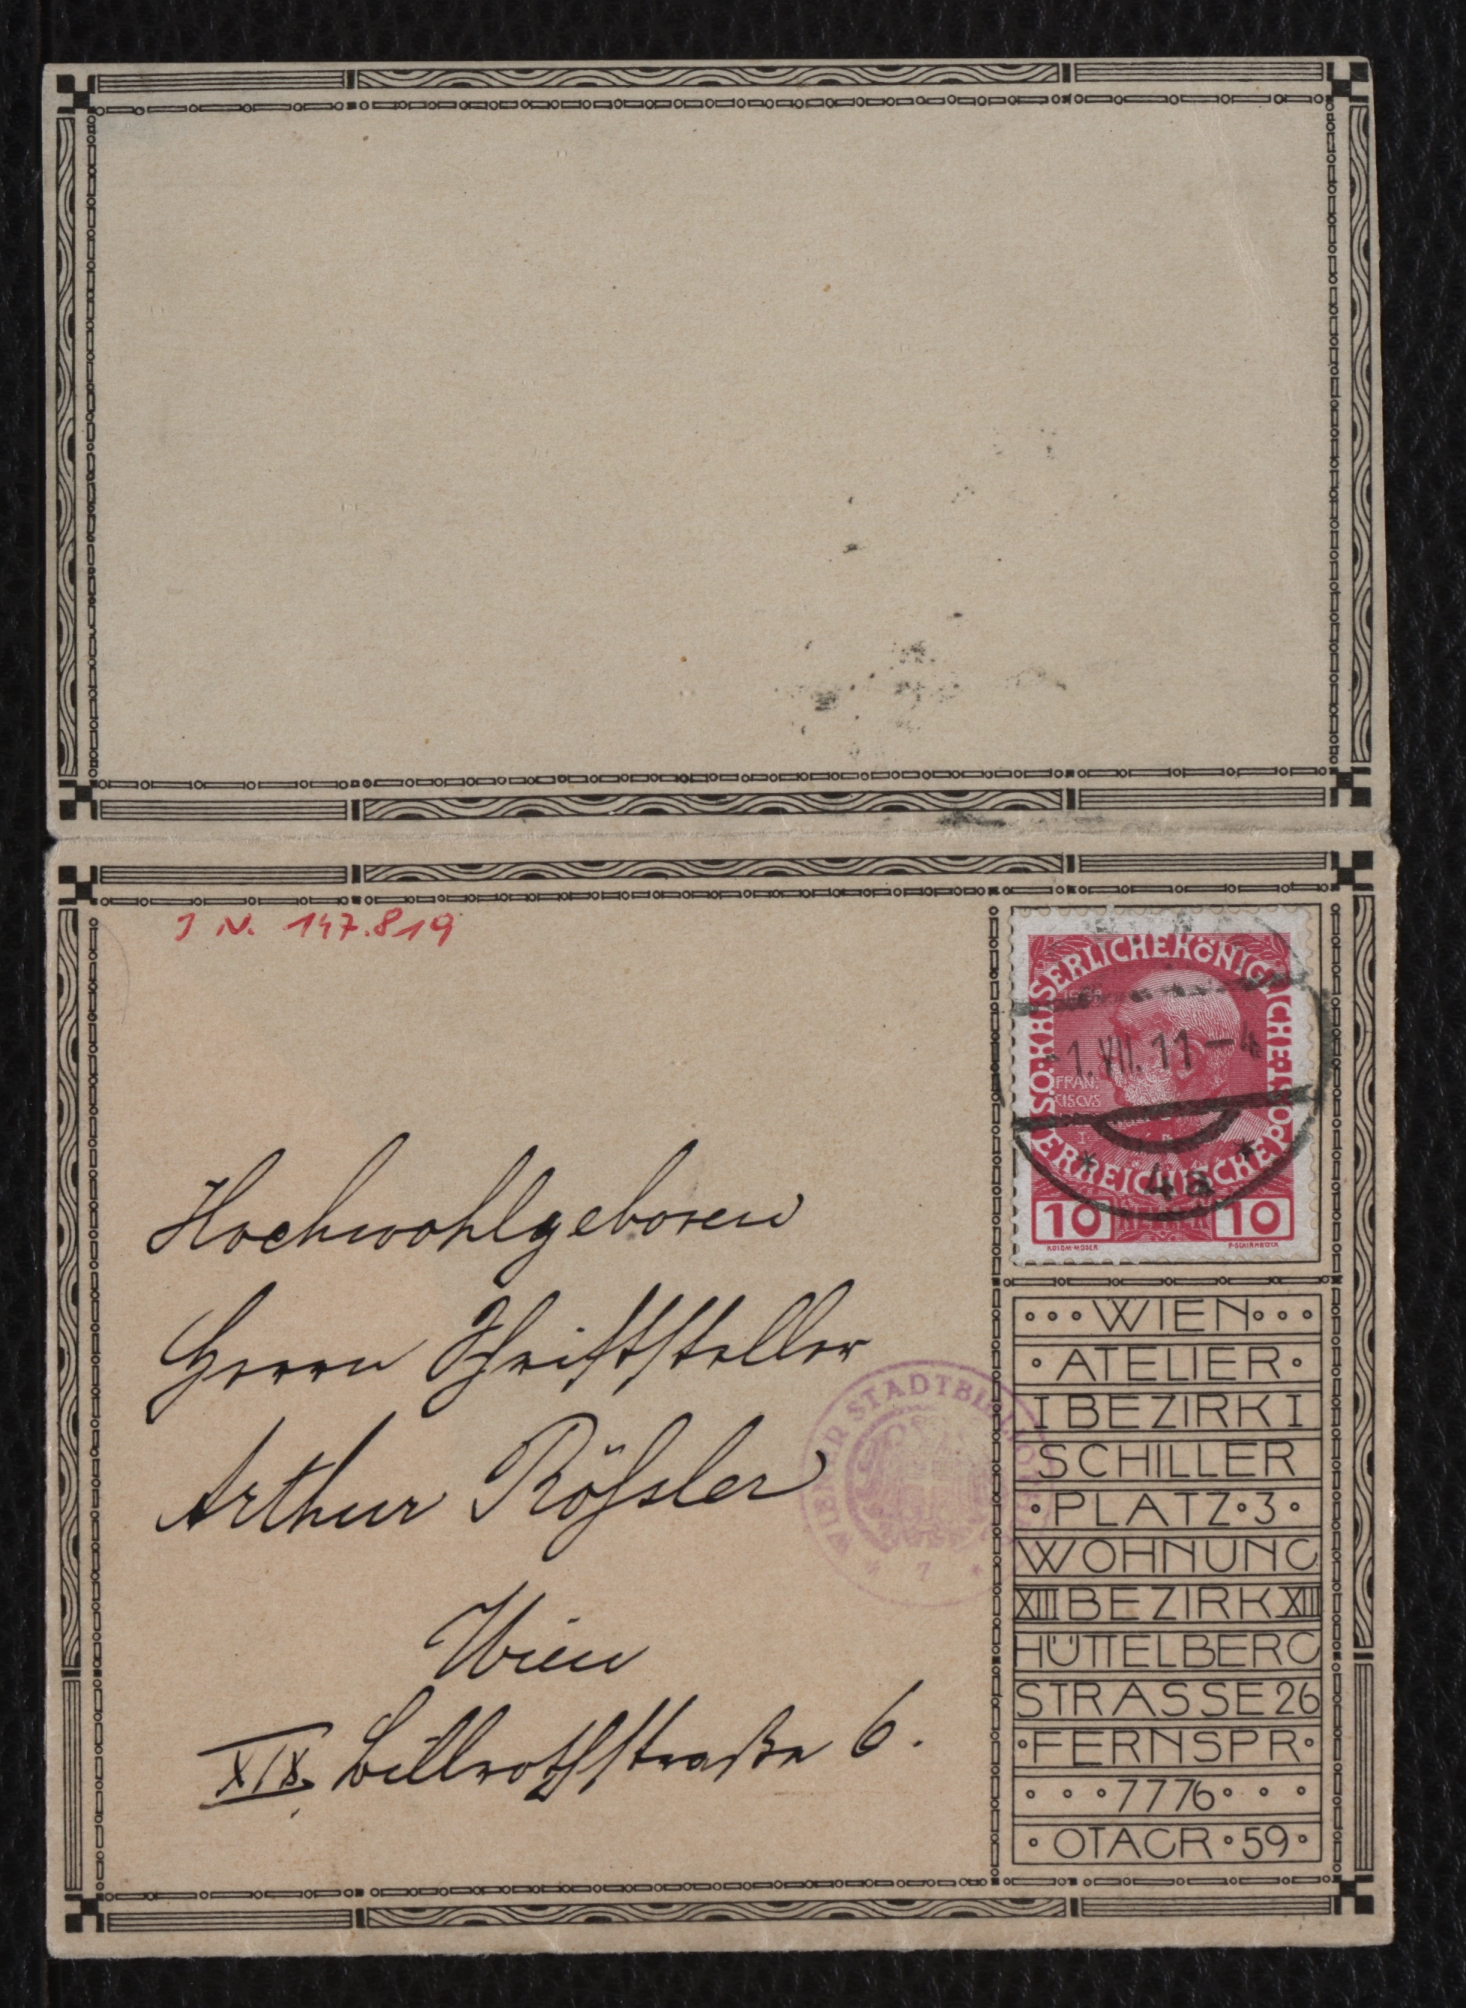 J N. 147.819
KAISERLICHEKÖNIGLICHE
ÖSTERREICHISCHE POST
1908
FRAN
CISCVS
I
1.VII.11-4
* 4a *
10 HELLER 10
KOLOM·MOSER
F·SCHIRNBÖCK
Hochwohlgeboren
Herrn Schriftsteller
Arthur Rößler
Wien
XIX. Billrothstraße 6.
WIENER STADTBIBLIOTHEK
* 7 *
WIEN
ATELIER
I BEZIRK I
SCHILLER
PLATZ·3
WOHNUNG
XIII BEZIRK XIII
HÜTTELBERG
STRASSE 26
FERNSPR
7776
OTAGR·59